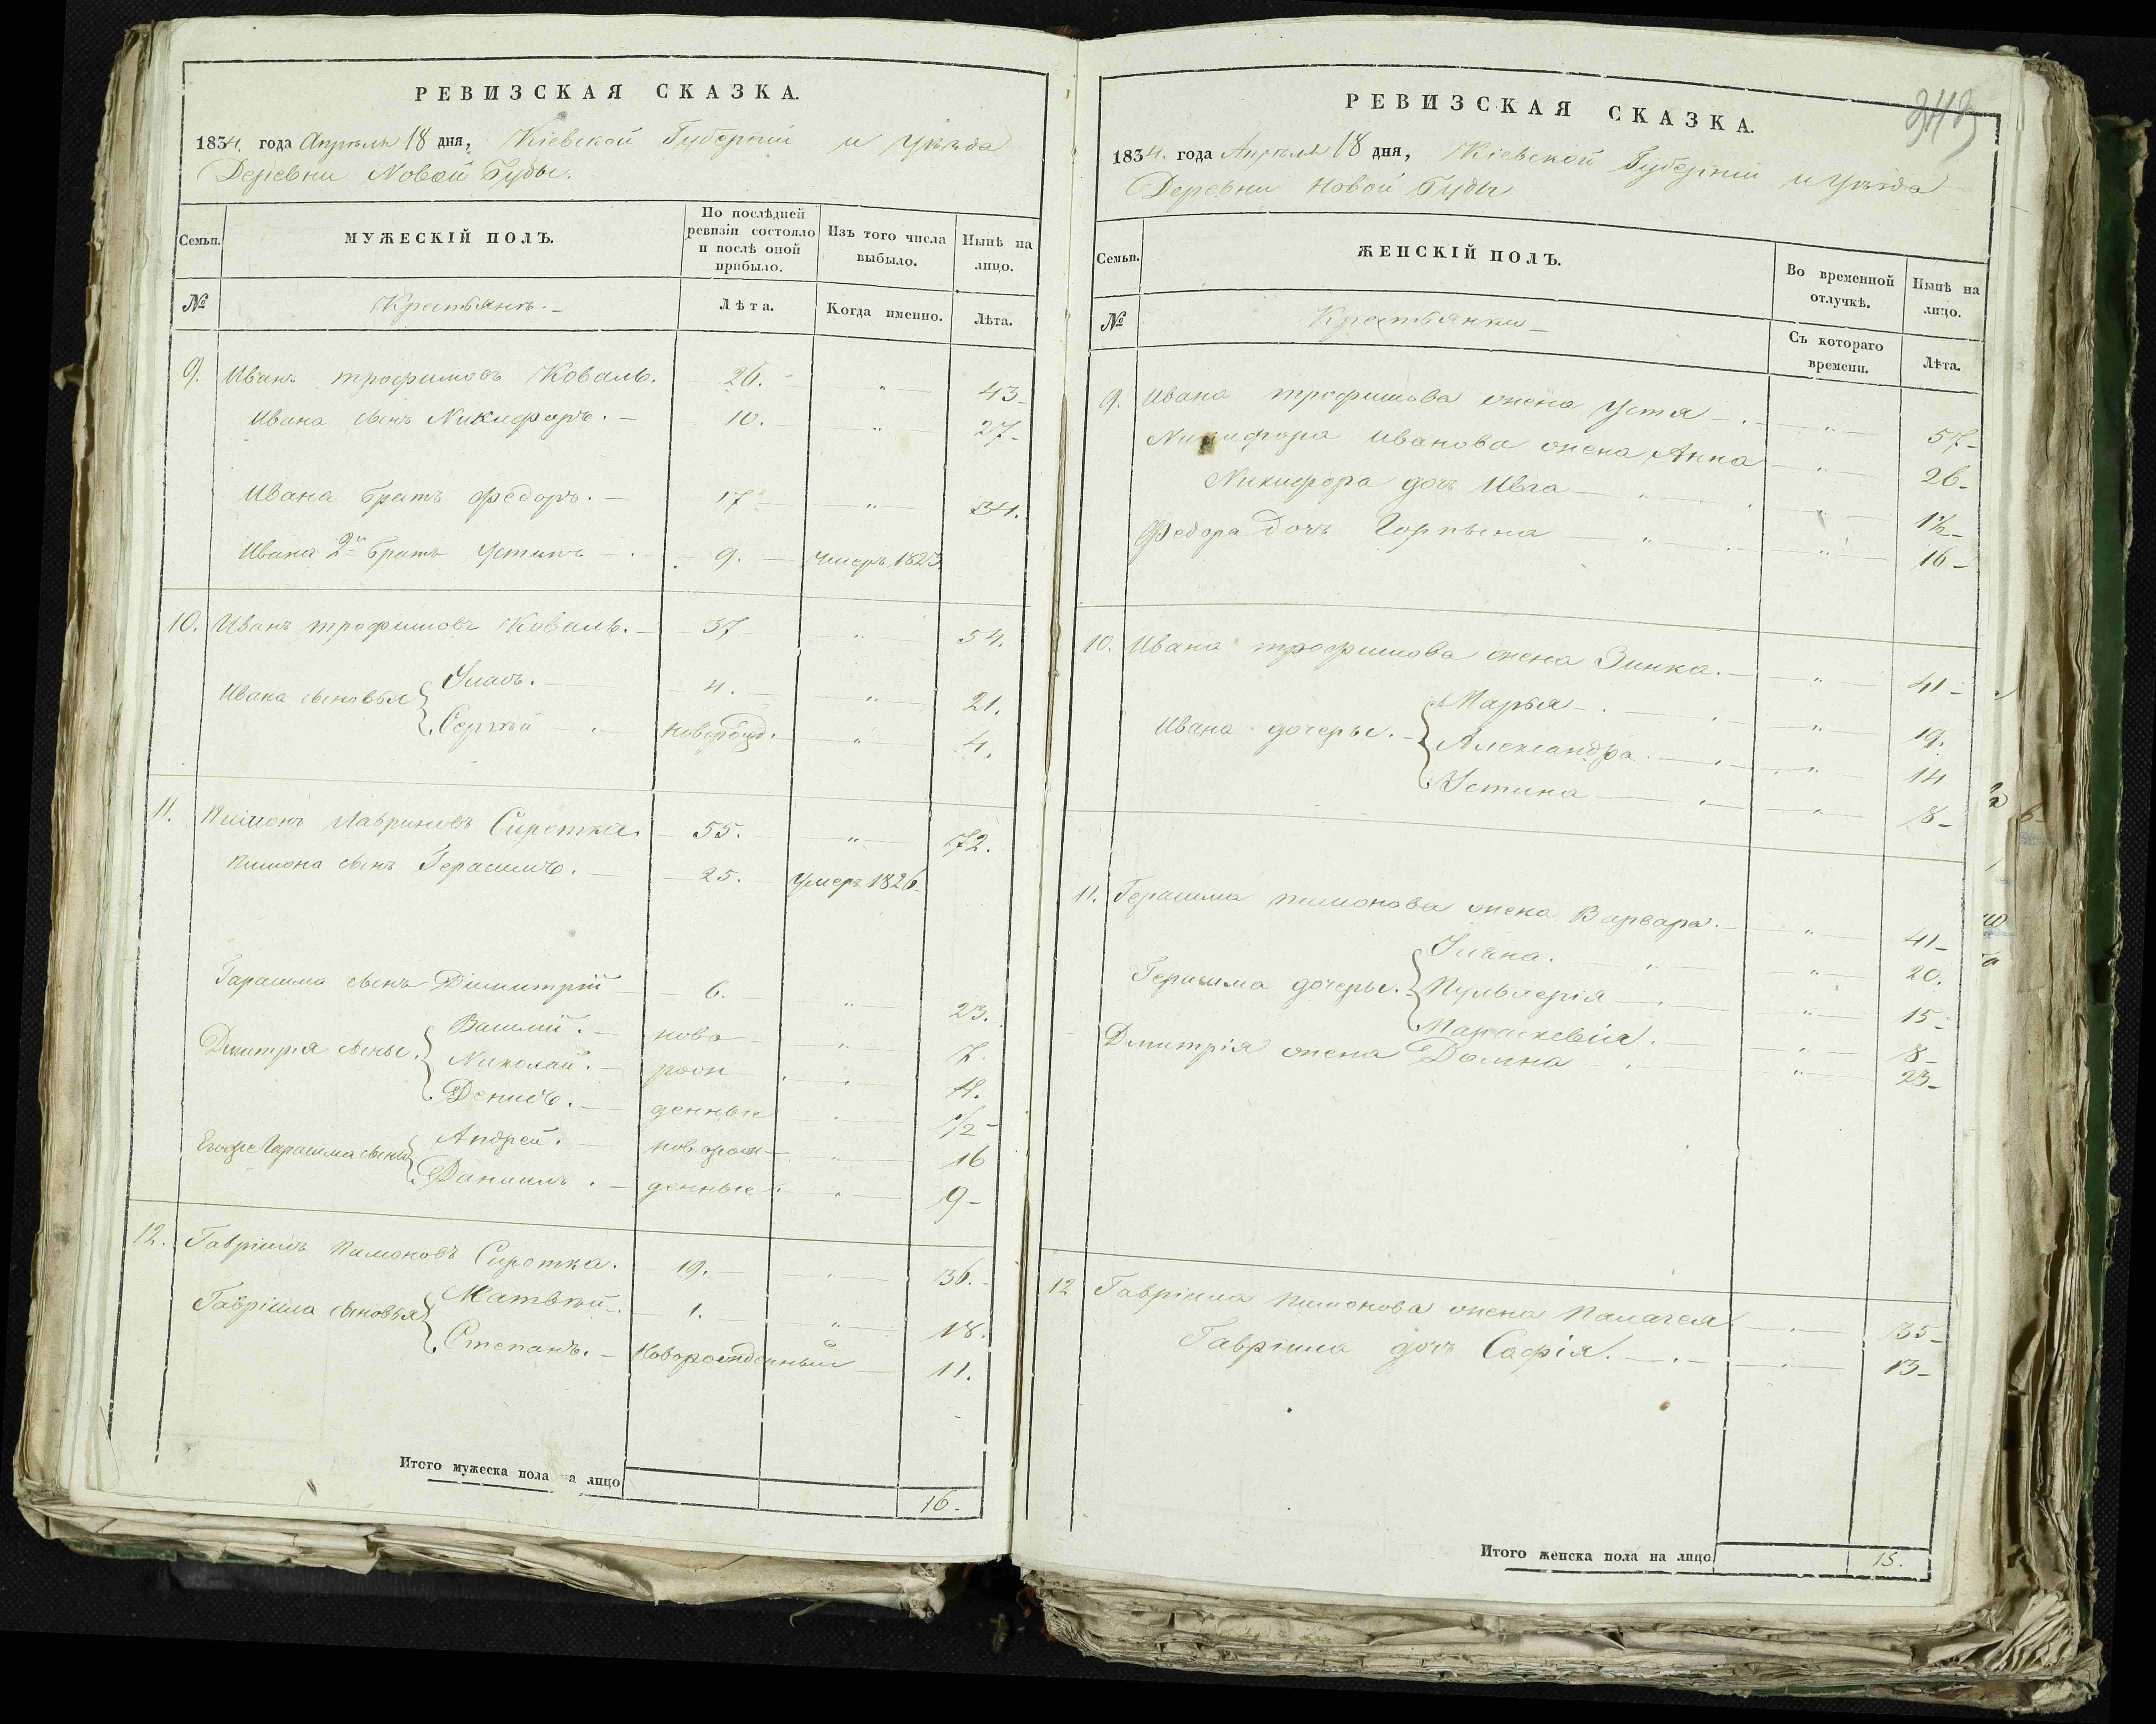 РЕВИЗСКАЯ СКАЗКА.
1834. года Апрѣля 18 дня, Кіевской Губерніи и уѣзда
Деревни Новой Буды.
Семьи. МУЖЕСКІЙ ПОЛЪ. По послѣдней ревизіи состояло и послѣ оной прибыло. Изъ того числа выбыло. Нынѣ на лицо.
№ Крестьянъ. Лѣта. Когда именно. Лѣта.
9. Иванъ трофимовъ Коваль. 26. " 43
Ивана сынъ Никифоръ. 10. " 27
Ивана братъ Федоръ. 17 " 34.
Ивана 2й братъ Устинъ 9. умеръ 1823
10. Иванъ трофимовъ Коваль. 37 " 54.
Ивана сыновья Уласъ. 4. " 21.
Сергѣй новорожд. " 4.
11. Пимонъ Лавриновъ Сиротка. 55. " 72.
Пимона сынъ Герасимъ. 25. умеръ 1826
Гарасима сынъ Димитрій 6. " 23.
Дмитрія сыны. Василій. ново " 7.
Николай. рож " 4.
Денисъ. денные " 1/2
Гарасима сыны Андрей.новорож " 16
Даниилъ. денные " 9
12. Гавріилъ Пимоновъ Сиротка. 19. " 36.
Гавріила сыновья Матвѣй. 1. " 18.
Степанъ. Новорожденный 11.
Итого мужеска пола на лицо 16.
РЕВИЗСКАЯ СКАЗКА.
1834. года Апрѣля 18 дня, Кіевской Губерніи и уѣзда
Деревни Новой Буды
Семьи. ЖЕНСКІЙ ПОЛЪ. Во временной отлучкѣ. Нынѣ на лицо.
№ Крестьянки Съ котораго времени. Лѣта.
9. Ивана трофимова жена Устя " 57
Никифора Иванова жена Анна " 26
Никифора дочь Ивга " 1½
Федора дочь Горпына " 16
10. Ивана трофимова жена Зинка. " 41
Ивана дочерье. Марья " 19.
Александра " 14
Устина " 8
11. Герасима пимонова жена Варвара. " 41
Герасима дочерье. Уліяна. " 20.
Пульхерія " 15
Параскевія. " 8
Дмитрія жена Домна " 23
12 Гавріила Пимонова жена Палагея " 35
Гавріила дочь Софія. " 13
Итого женска пола на лицо 15.